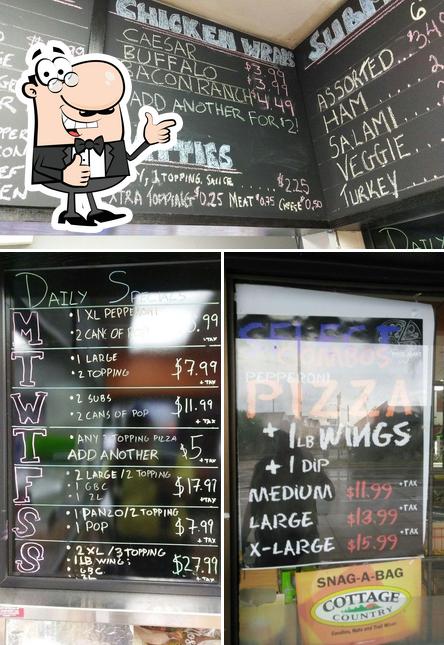 CHICKEN WRAPS
CAESAR $3.99
BUFFALO $3.99
BACON RANCH $4.49
ADD ANOTHER FOR $2!
1 TOPPING, SAUCE ..... $2.25
XTRA TOPPING $0.25 MEAT $0.75 CHEESE $0.50
6
ASSORTED
HAM
SALAMI
VEGGIE
TURKEY
DAILY
DAILY SPECIALS
M • 1 XL PEPPERONI
• 2 CANS OF POP .99 +TAX
T • 1 LARGE
• 2 TOPPING $7.99 +TAX
W • 2 SUBS
• 2 CANS OF POP $11.99 +TAX
T • ANY 3 TOPPING PIZZA
ADD ANOTHER $5 +TAX
F • 2 LARGE/2 TOPPING
• 1 GBC
• 1 2L $17.97 +TAX
S • 1 PANZO/2 TOPPING
• 1 POP $7.99 +TAX
S • 2 XL/3 TOPPING
• 1LB WING:
• GBC $27.99
• 2L
SELECT
COMBOS
PEPPERONI
PIZZA
+ 1LB WINGS
+ 1 DIP
MEDIUM $11.99 +TAX
LARGE $13.99 +TAX
X-LARGE $15.99 +TAX
SNAG-A-BAG
COTTAGE
COUNTRY
Candies, Nuts and Trail Mixes